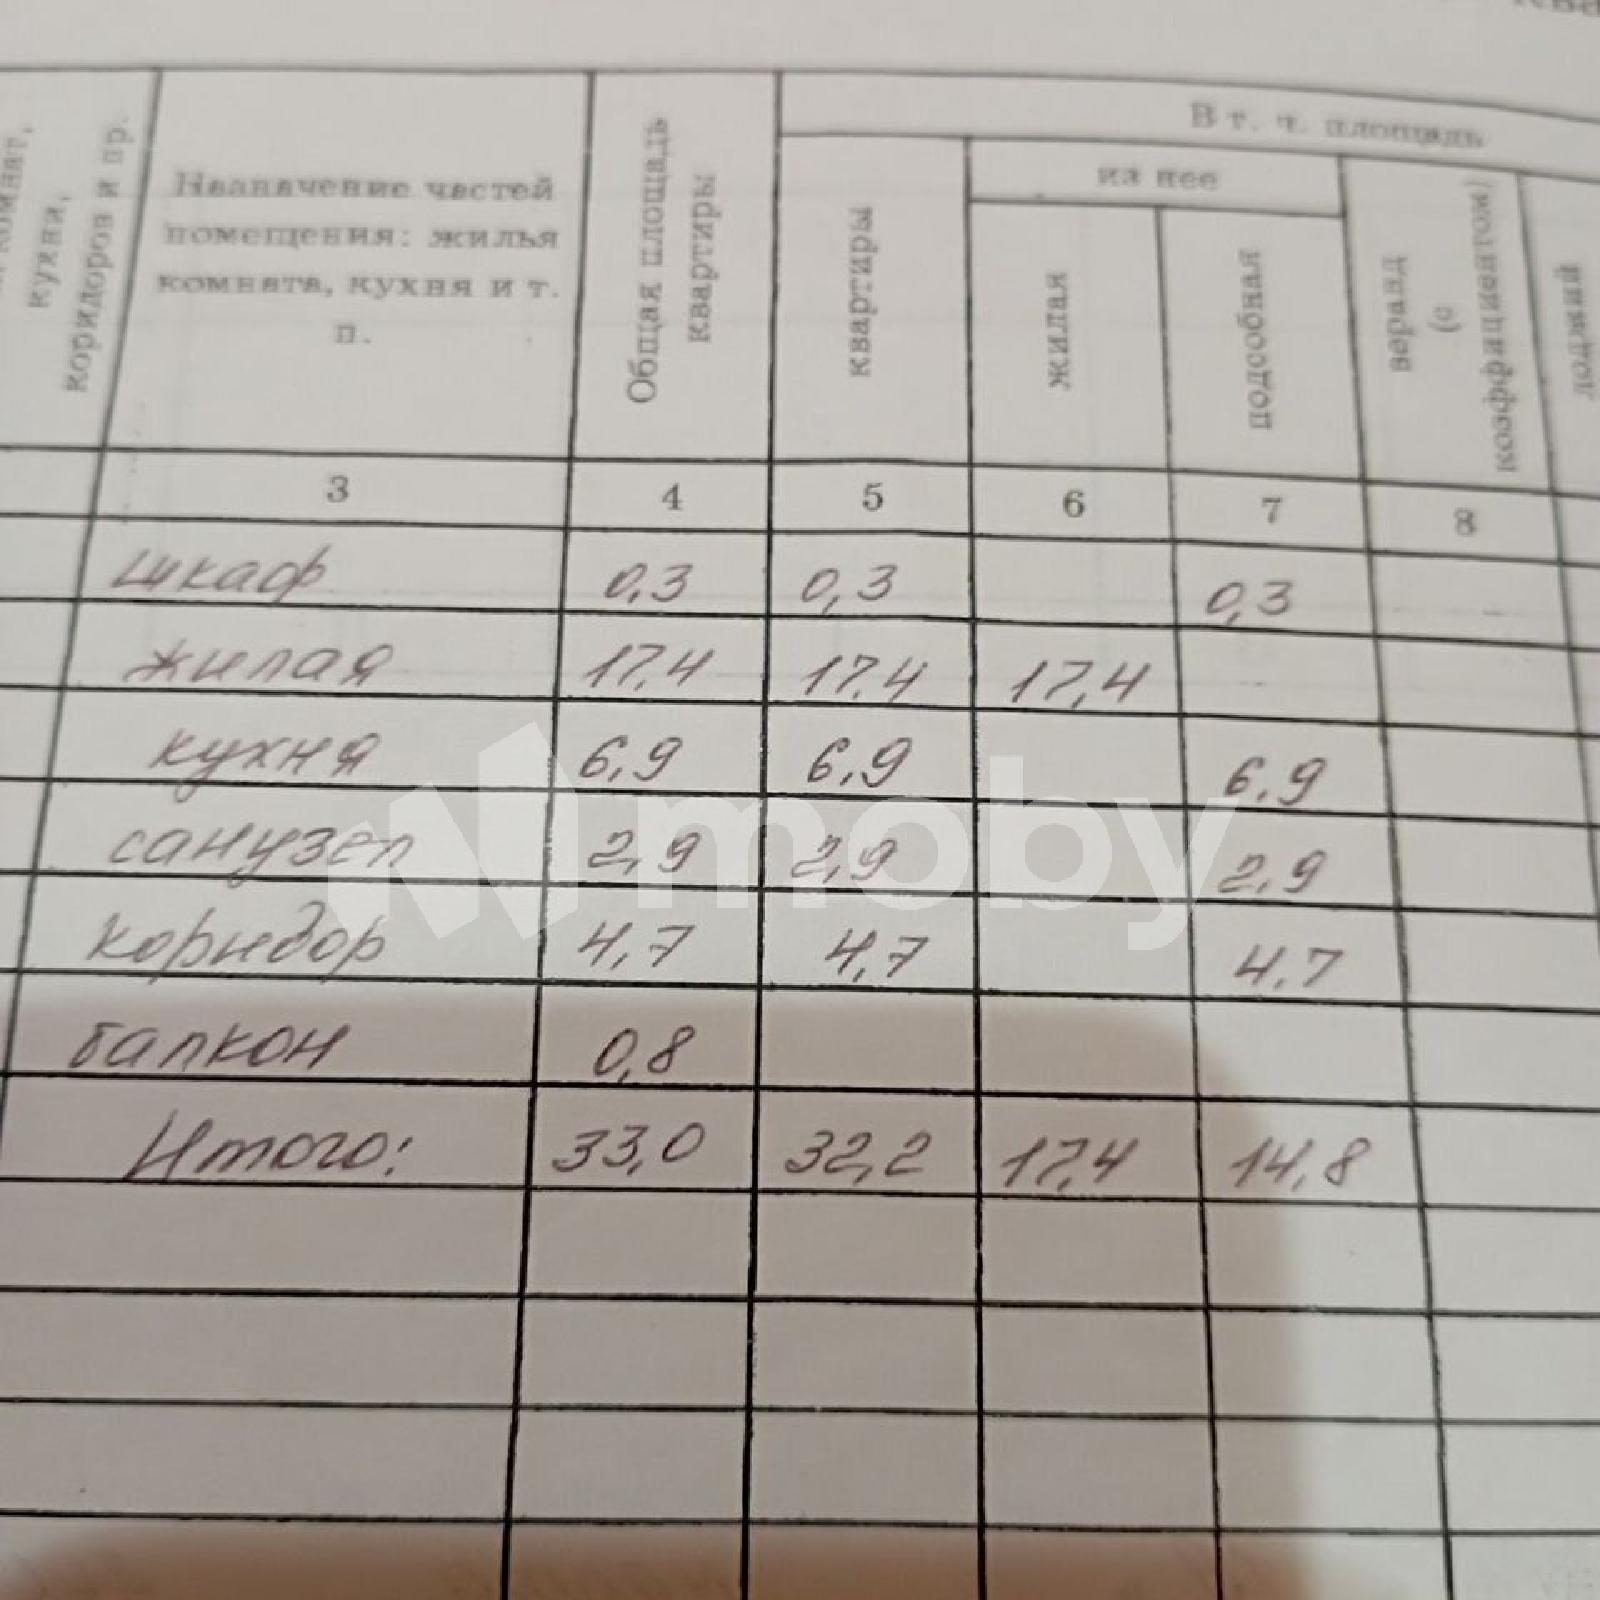 В т. ч. площадь
из нее
кухни,
коридоров и пр.
Назначение частей
помещения: жилья
комната, кухня и т.
п.
Общая площадь
квартиры
квартиры
жилая
подсобная
веранд
(с
коэффициентом)
3 4 5 6 7 8
шкаф 0,3 0,3 0,3
жилая 17,4 17,4 17,4
кухня 6,9 6,9 6,9
санузел 2,9 2,9 2,9
коридор 4,7 4,7 4,7
балкон 0,8
Итого: 33,0 32,2 17,4 14,8
moby